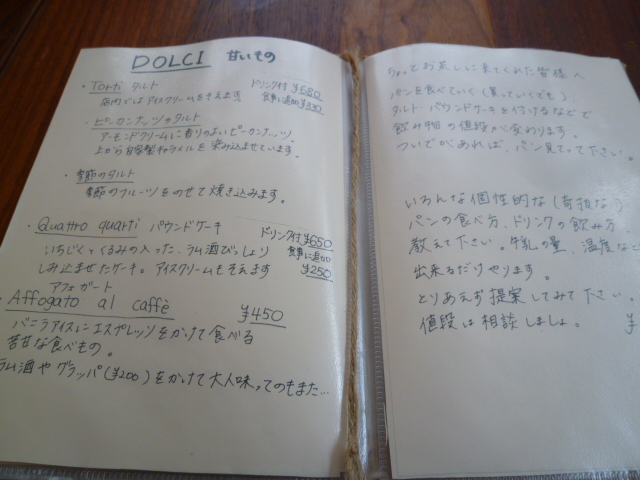 DOLCI 甘いもの
・Torti タルト ドリンク付 ¥680
店内ではアイスクリームをそえます 食事に追加 ¥330
・ピーカンナッツのタルト
アーモンドクリームに香りのよいピーカンナッツ
上から自家製キャラメルを染み込ませています。
・季節のタルト
季節のフルーツをのせて焼き込みます。
・Quattro quarti パウンドケーキ ドリンク付 ¥650
いちじくとくるみの入った、ラム酒びっしょり 食事に追加
しみ込ませたケーキ。アイスクリームもそえます ¥250
アフォガート
・Affogato al caffè ¥450
バニラアイスにエスプレッソをかけて食べる
苦せな食べもの。
ラム酒やグラッパ(¥200)をかけて大人味ってのもまた…
ちょっとお茶しに来てくれた皆様へ
パンを食べていく(買っていくでも)、
タルト・パウンドケーキを付けるなどで
飲み物の値段が変わります。
ついでがあれば、パン見てって下さい。
いろんな個性的な(奇抜な)
パンの食べ方、ドリンクの飲み方
教えて下さい。牛乳の量、温度など
出来るだけやります。
とりあえず提案してみて下さい。
値段は相談しましょ。 ¥